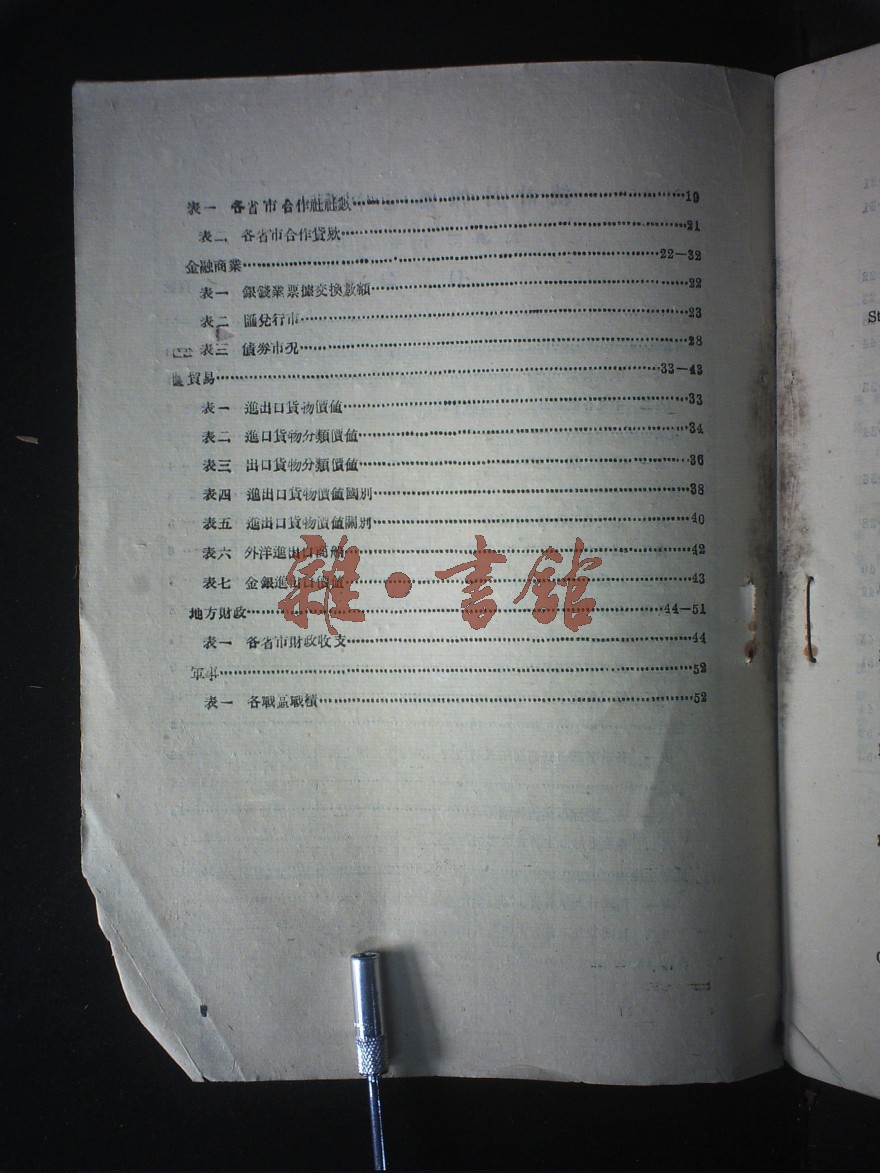 表一 各省市合作社社數……19
表二 各省市合作貸款……21
金融商業……22—32
表一 銀錢業票據交換數額……22
表二 匯兌行市……23
表三 債券市況……28
貿易……33—43
表一 進出口貨物價值……33
表二 進口貨物分類價值……34
表三 出口貨物分類價值……36
表四 進出口貨物價值國別……38
表五 進出口貨物價值關別……40
表六 外洋進出口商船……42
表七 金銀進出口價值……43
地方財政……44—51
表一 各省市財政收支……44
軍事……52
表一 各戰區戰績……52
雜·書館